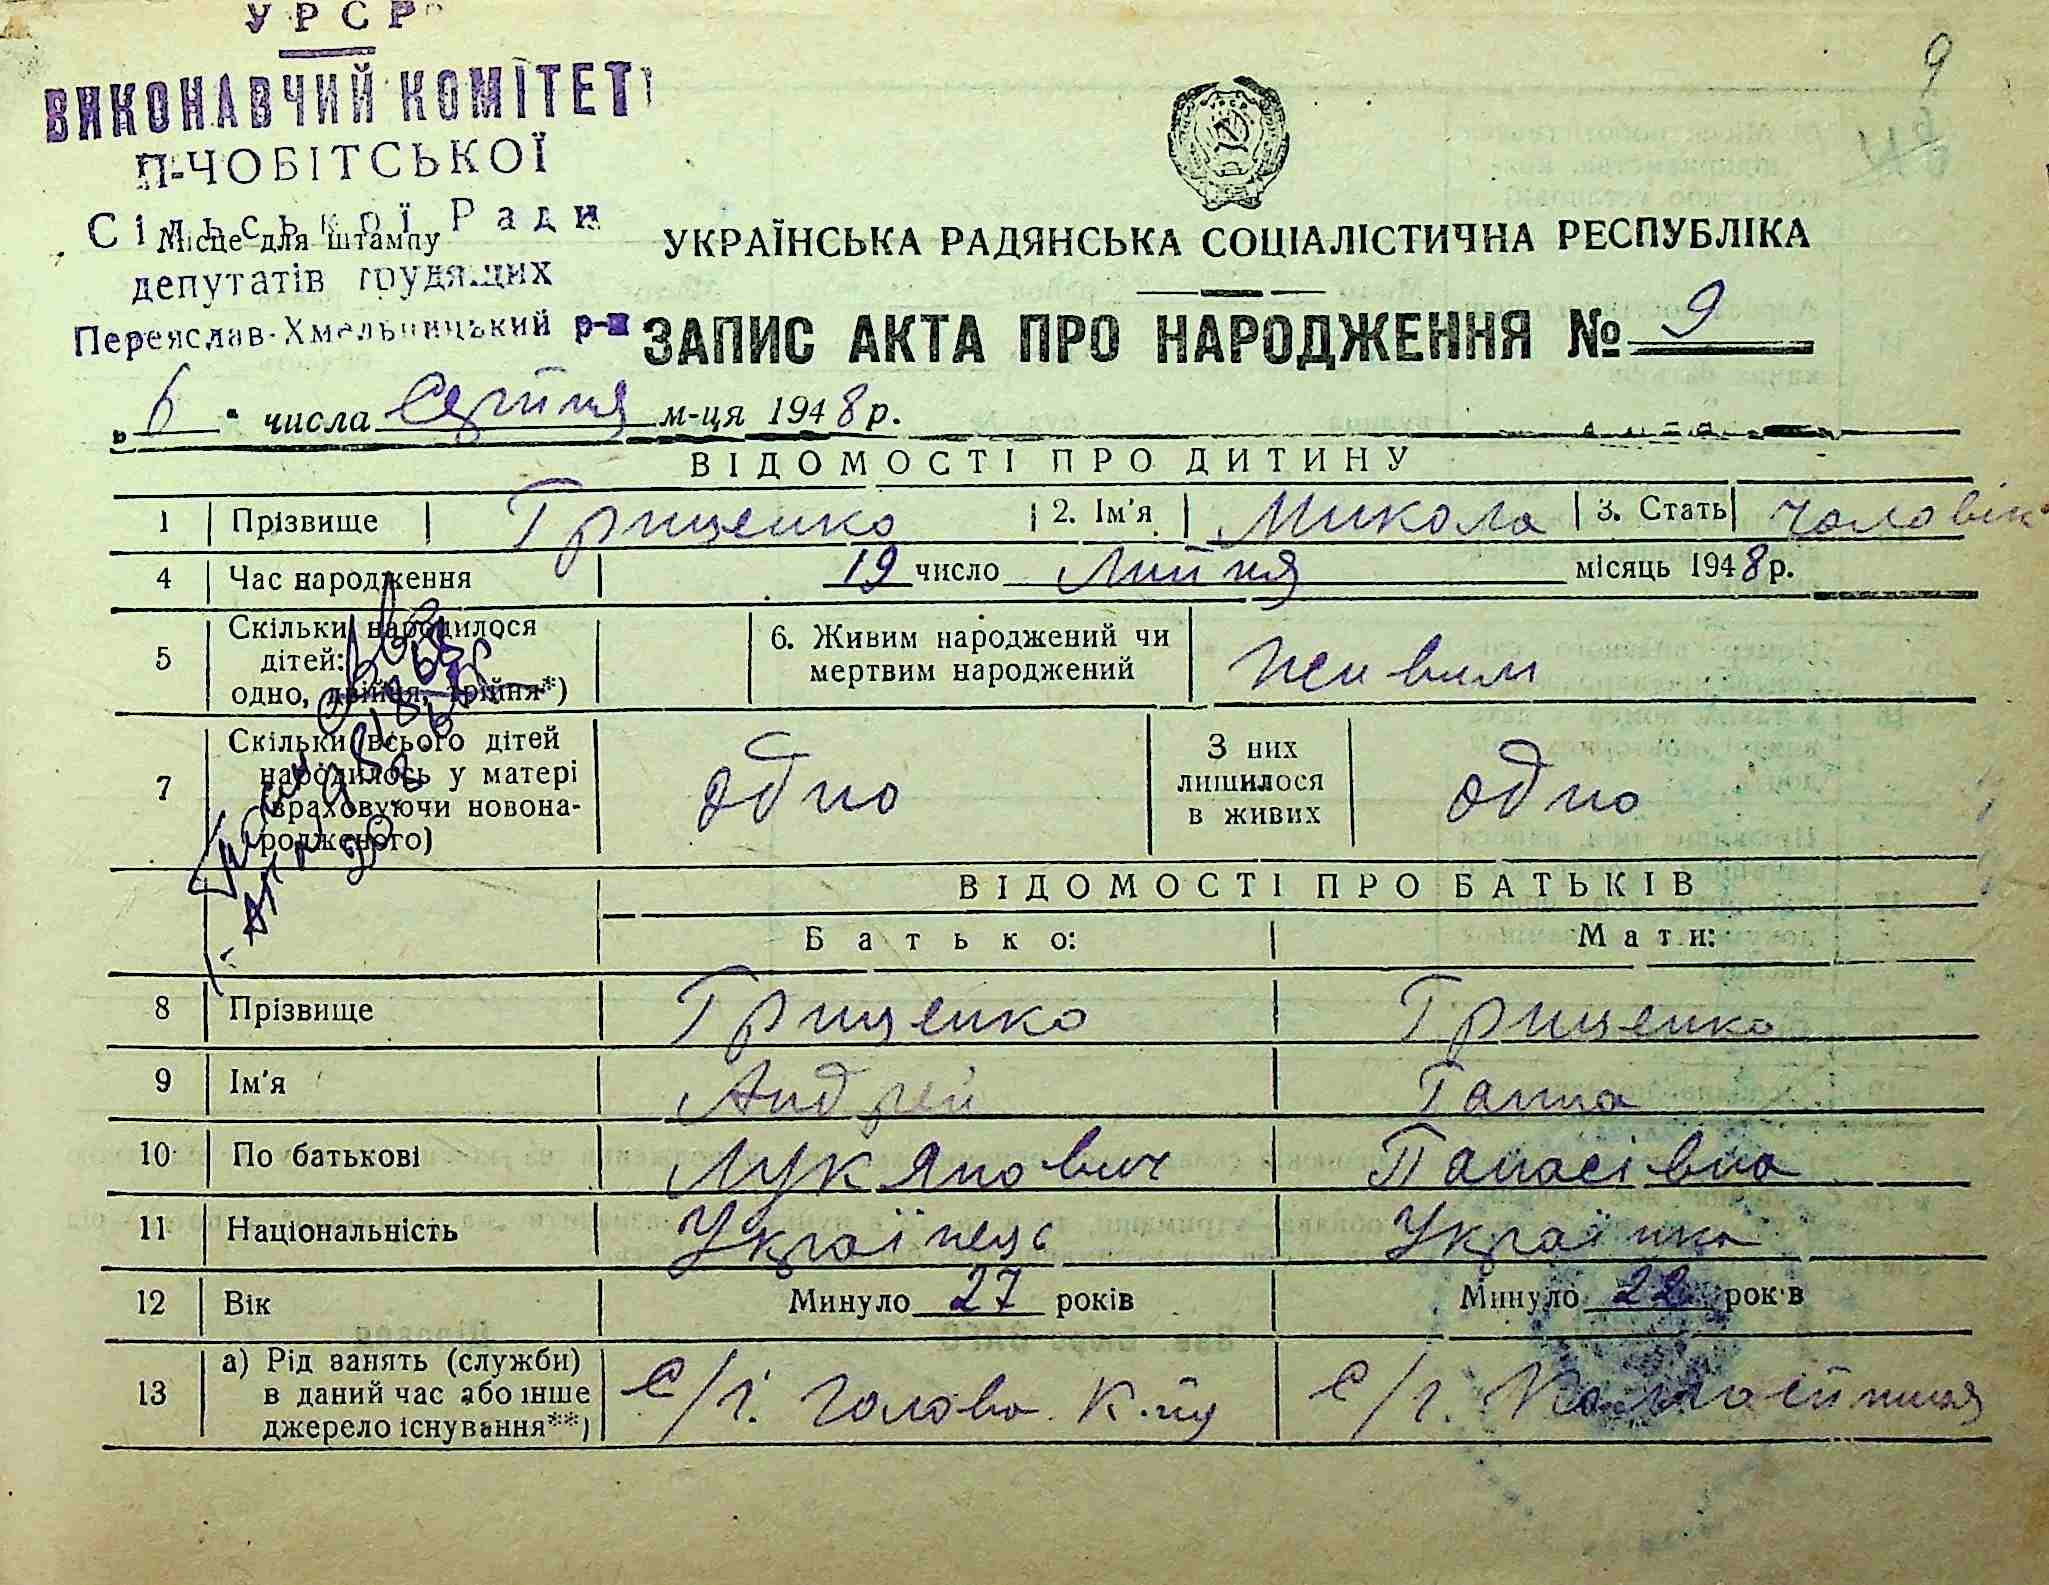 УРСР
ВИКОНАВЧИЙ КОМІТЕТ
П-ЧОБІТСЬКОЇ
Сільської Ради
Місце для штампу
депутатів трудящих
Переяслав-Хмельницький р-н
9
УРСР
УКРАЇНСЬКА РАДЯНСЬКА СОЦІАЛІСТИЧНА РЕСПУБЛІКА
ЗАПИС АКТА ПРО НАРОДЖЕННЯ № 9
„6" числа Серпня м-ця 1948 р.
ВІДОМОСТІ ПРО ДИТИНУ
1 Прізвище Гриценко 2. Ім'я Микола 3. Стать чоловік
4 Час народження 19 число Липня місяць 1948 р.
5 Скільки народилося дітей: одно, двійня, трійня*) 6. Живим народжений чи мертвим народжений живим
7 Скільки всього дітей народилось у матері (враховуючи новонародженого) одно З них лишилося в живих одно
ВІДОМОСТІ ПРО БАТЬКІВ
Батько: Мати:
8 Прізвище Гриценко Гриценко
9 Ім'я Андрей Ганна
10 По батькові Лукянович Панасівна
11 Національність Українець Українка
12 Вік Минуло 27 років Минуло 22 рок в
13 а) Рід занять (служби) в даний час або інше джерело існування**) с/г. голова с/г.